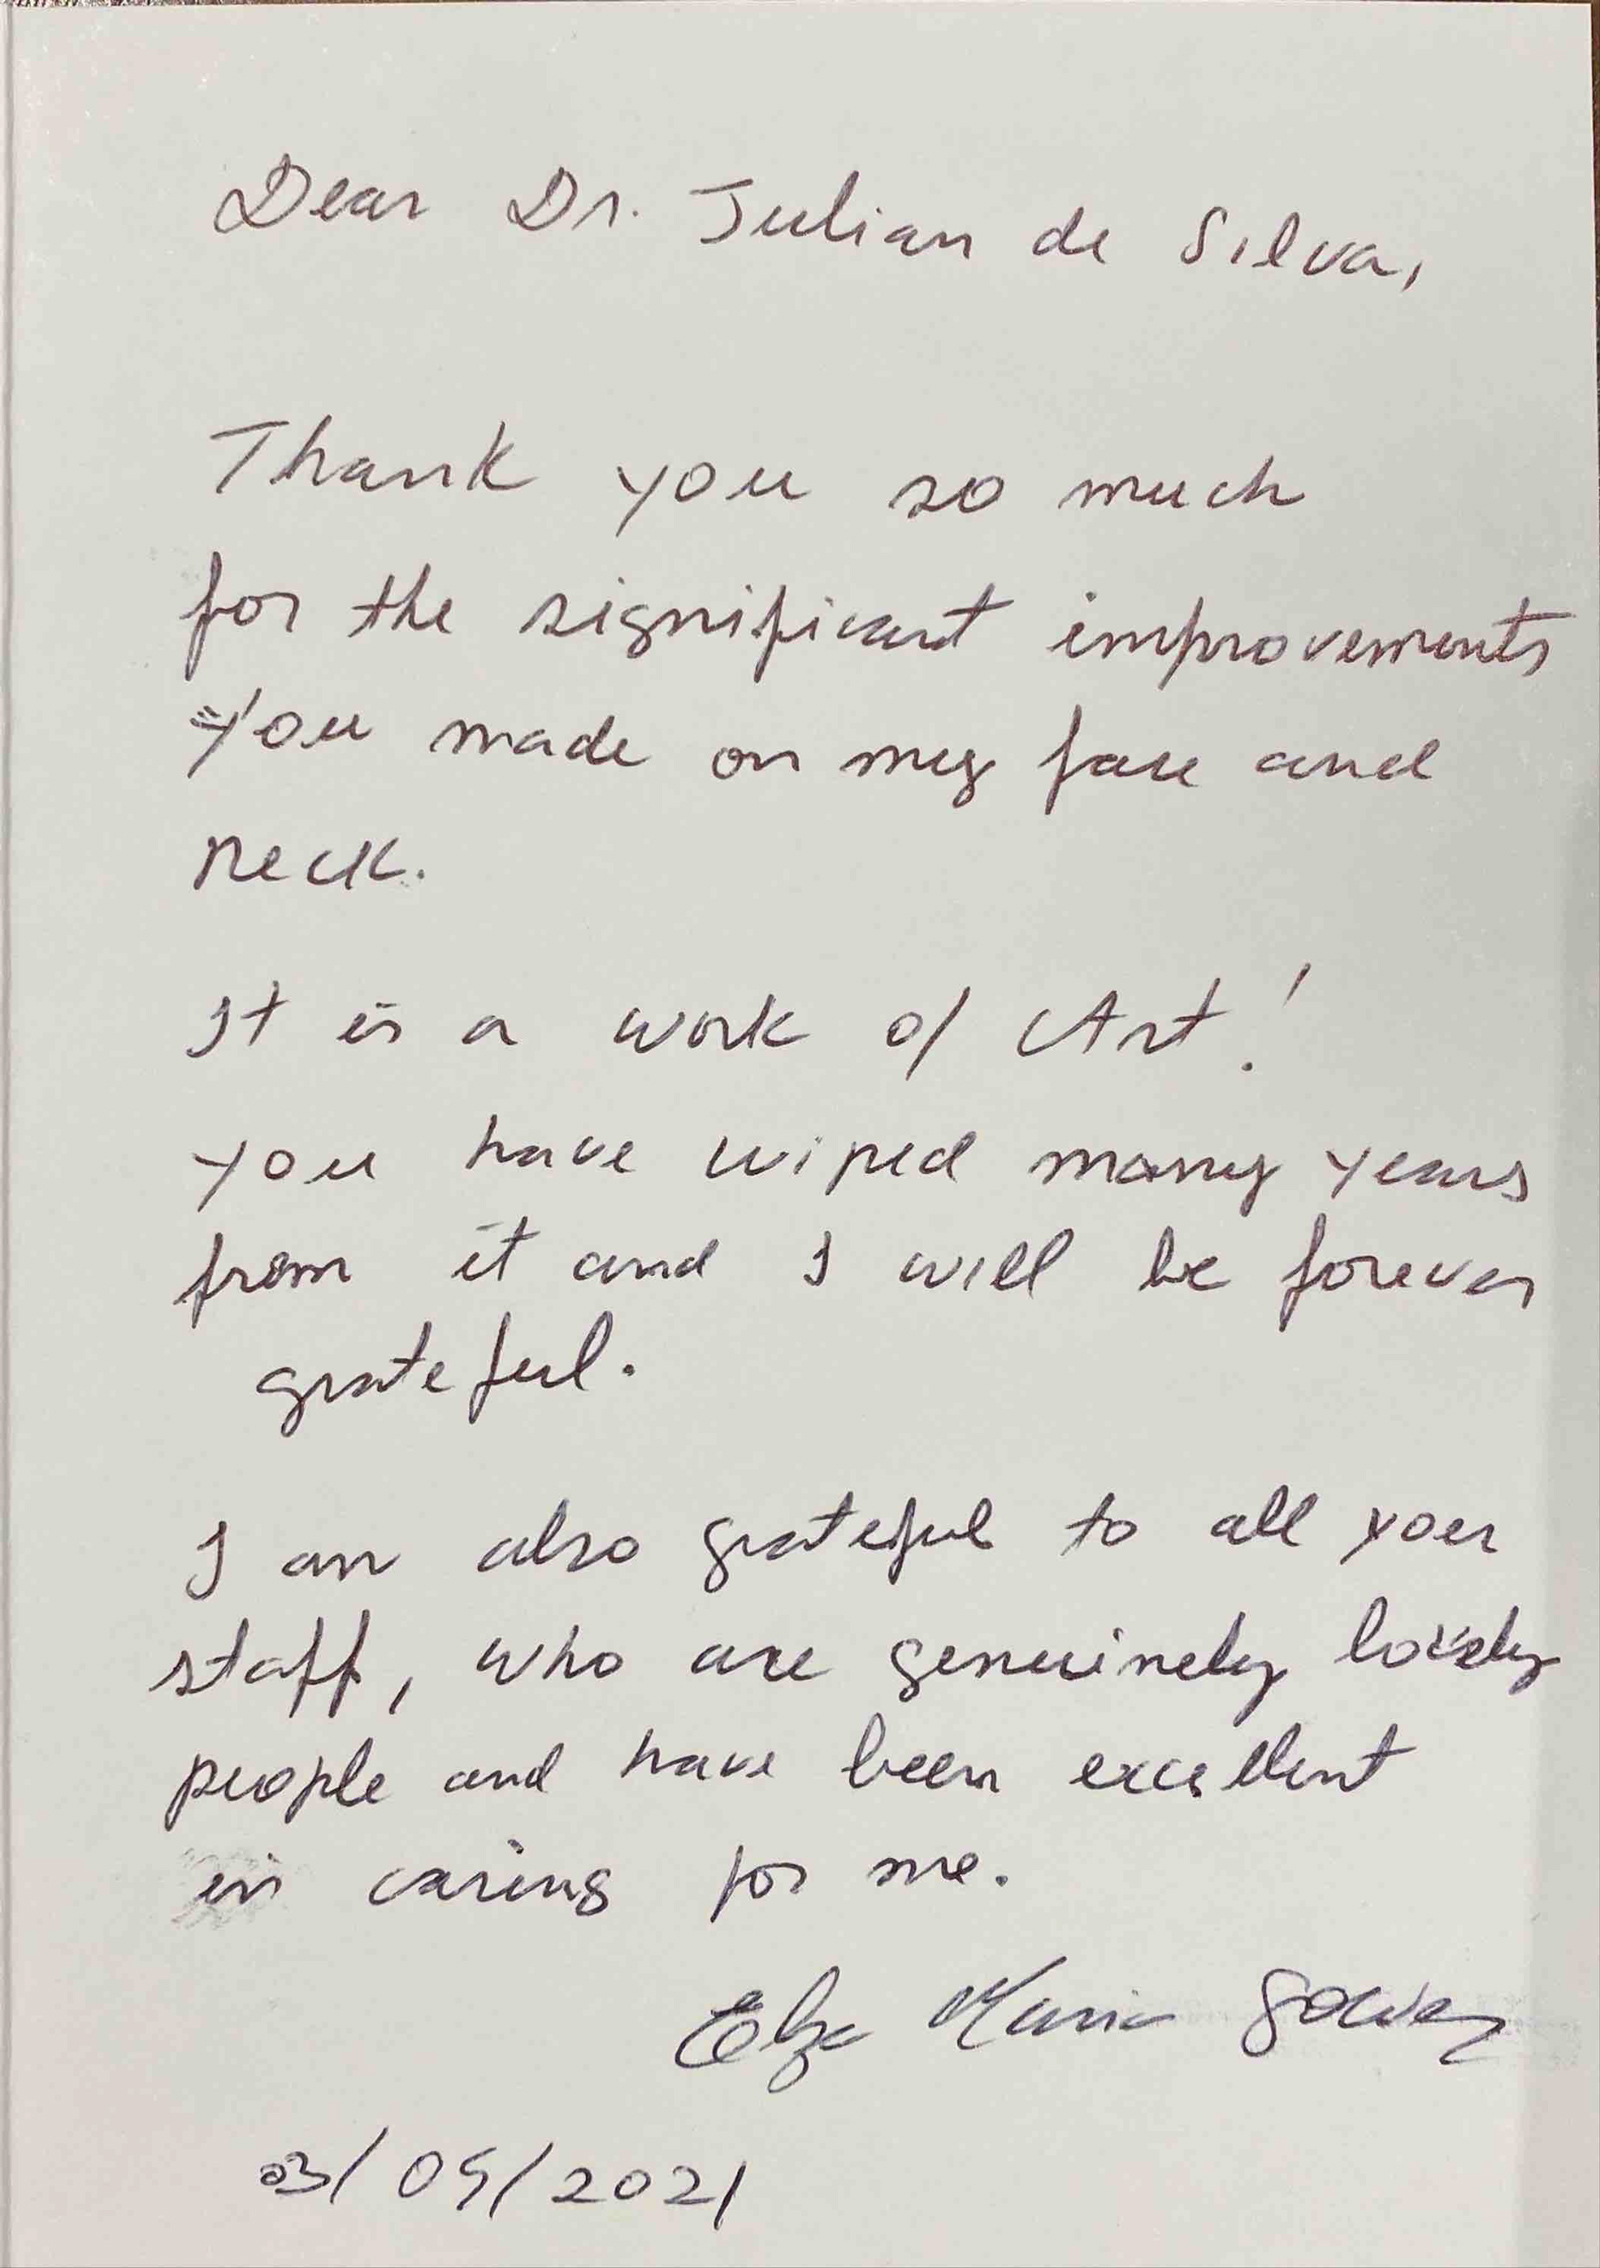 Dear Dr. Julian de Silva,
Thank you so much
for the significant improvements
you made on my face and
neck.
It is a work of Art!
You have wiped many years
from it and I will be forever
grateful.
I am also grateful to all your
staff, who are genuinely lovely
people and have been excellent
in caring for me.
Maria
03/05/2021